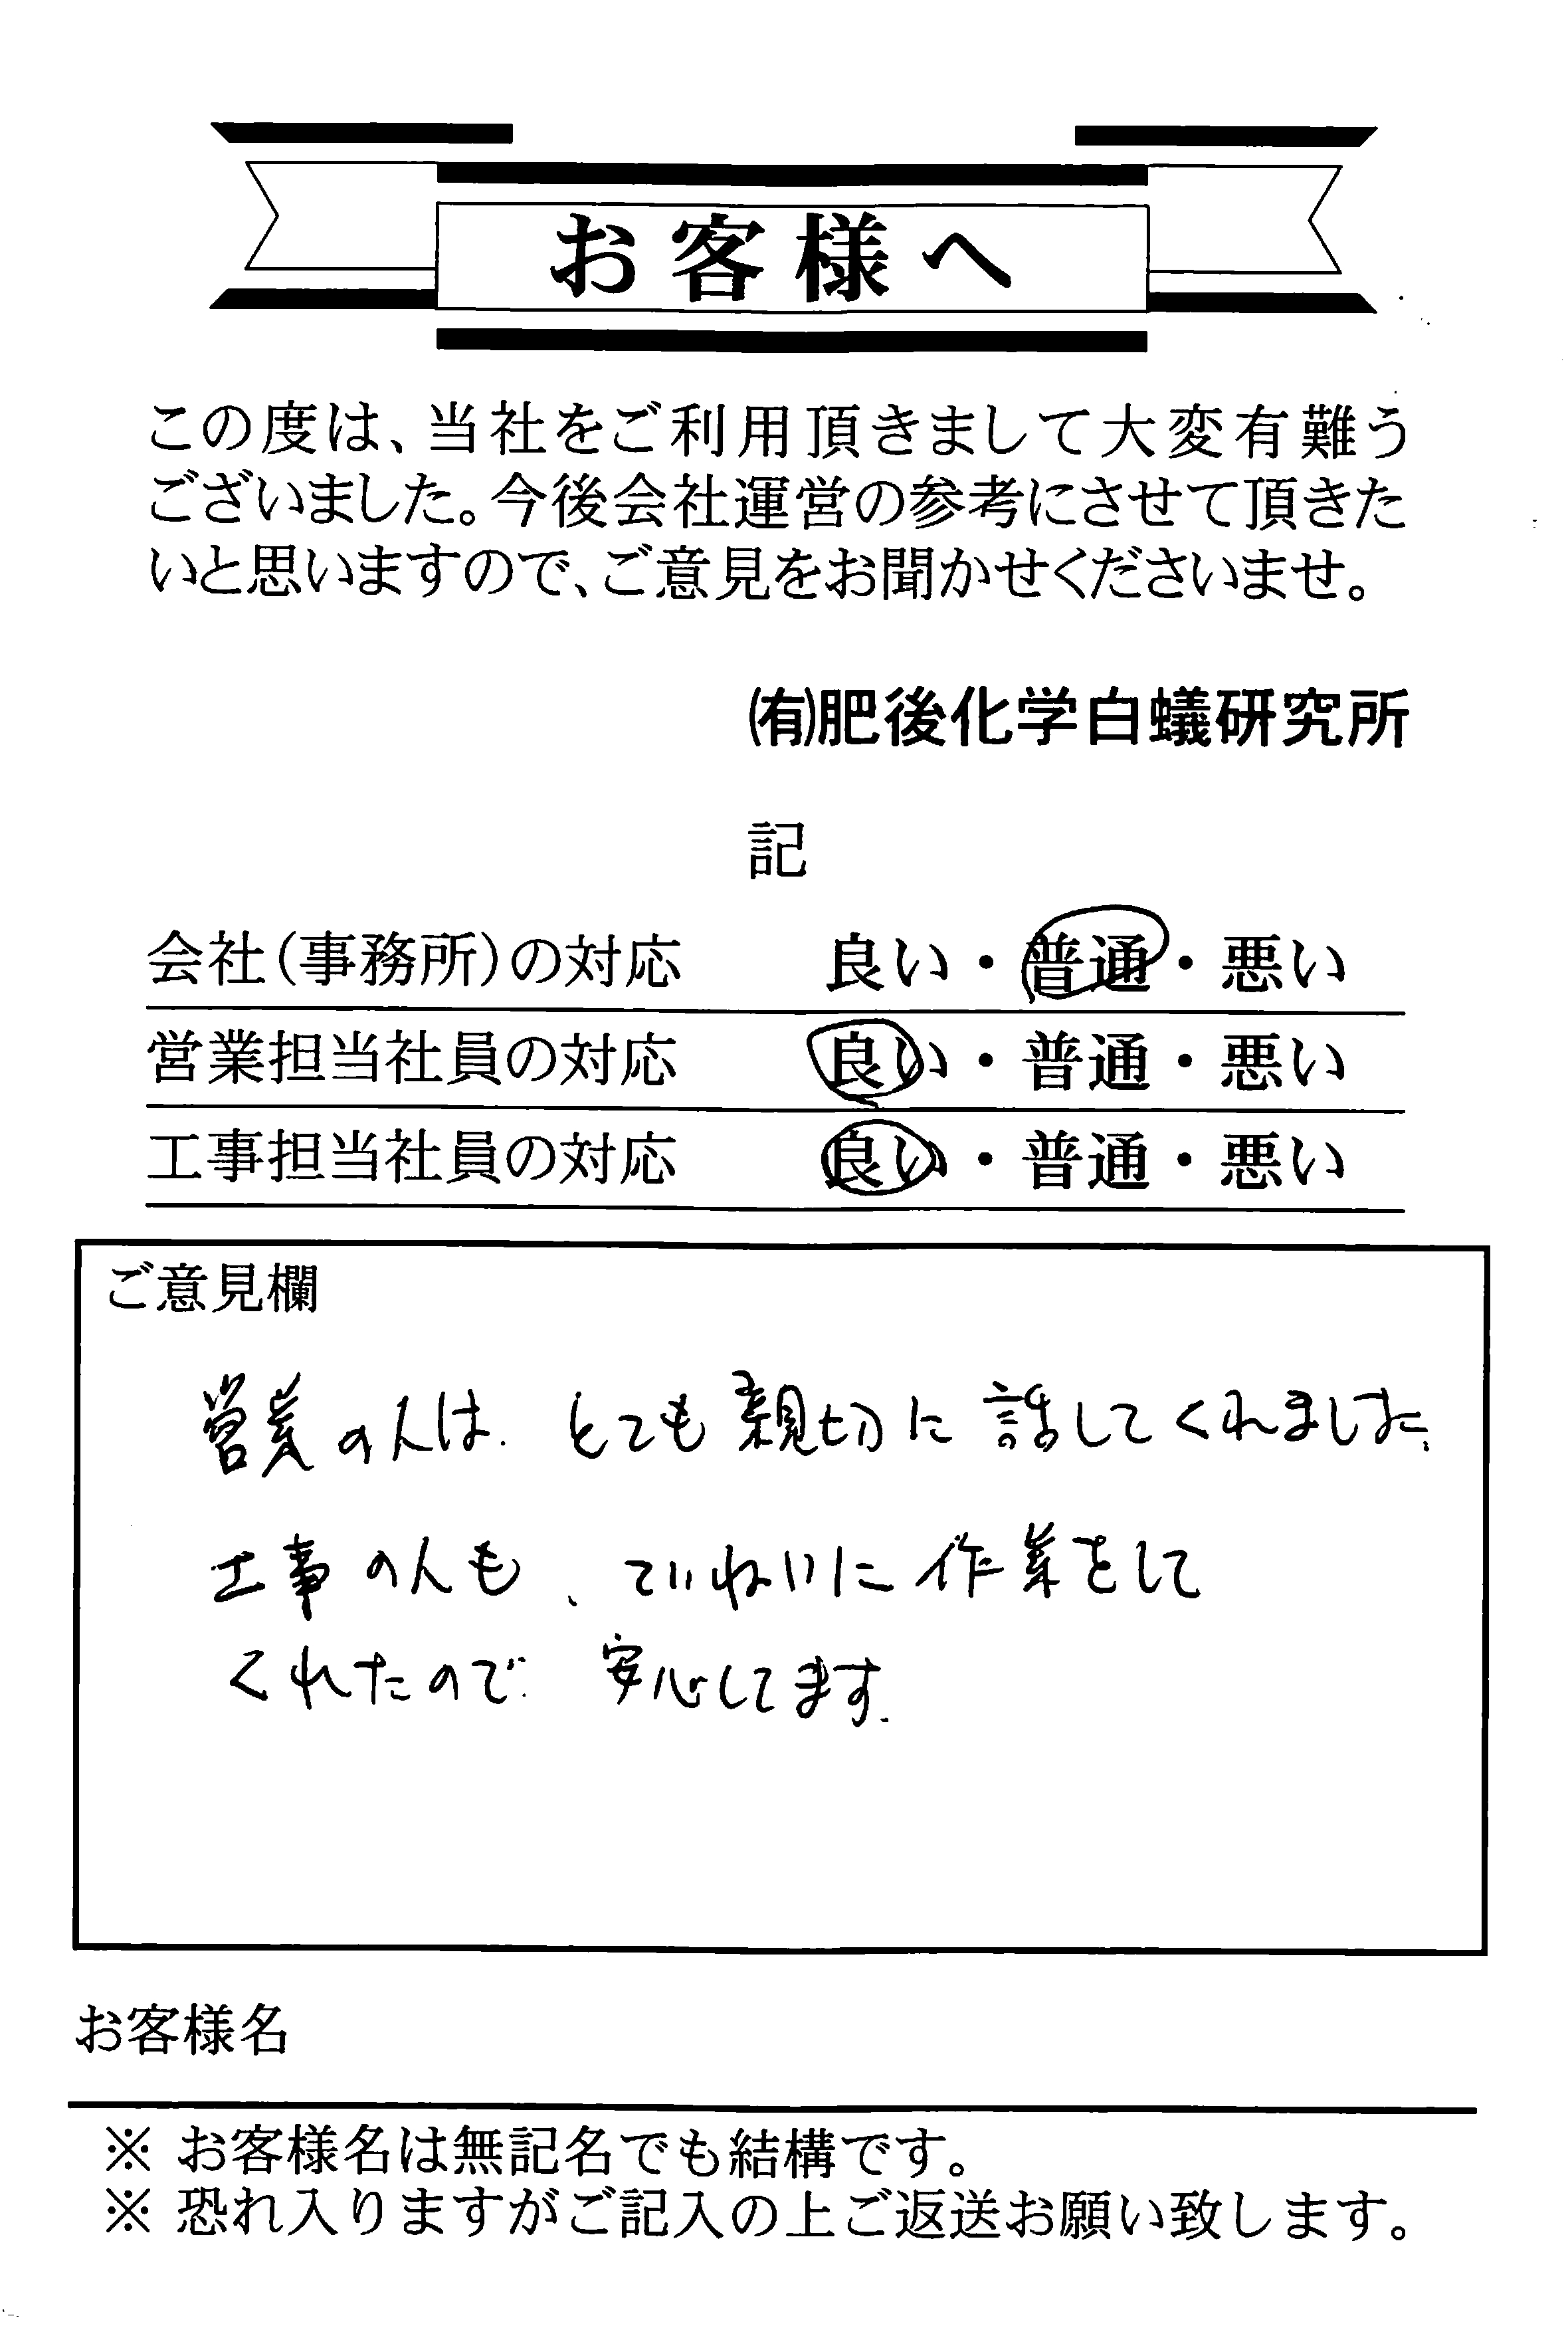 お客様へ
この度は、当社をご利用頂きまして大変有難う
ございました。今後会社運営の参考にさせて頂きた
いと思いますので、ご意見をお聞かせくださいませ。
㈲肥後化学白蟻研究所
記
会社(事務所)の対応 良い・普通・悪い
営業担当社員の対応 良い・普通・悪い
工事担当社員の対応 良い・普通・悪い
ご意見欄
営業の人は、とても親切に話してくれました。
工事の人も、ていねいに作業をして
くれたので、安心してます。
お客様名
※ お客様名は無記名でも結構です。
※ 恐れ入りますがご記入の上ご返送お願い致します。